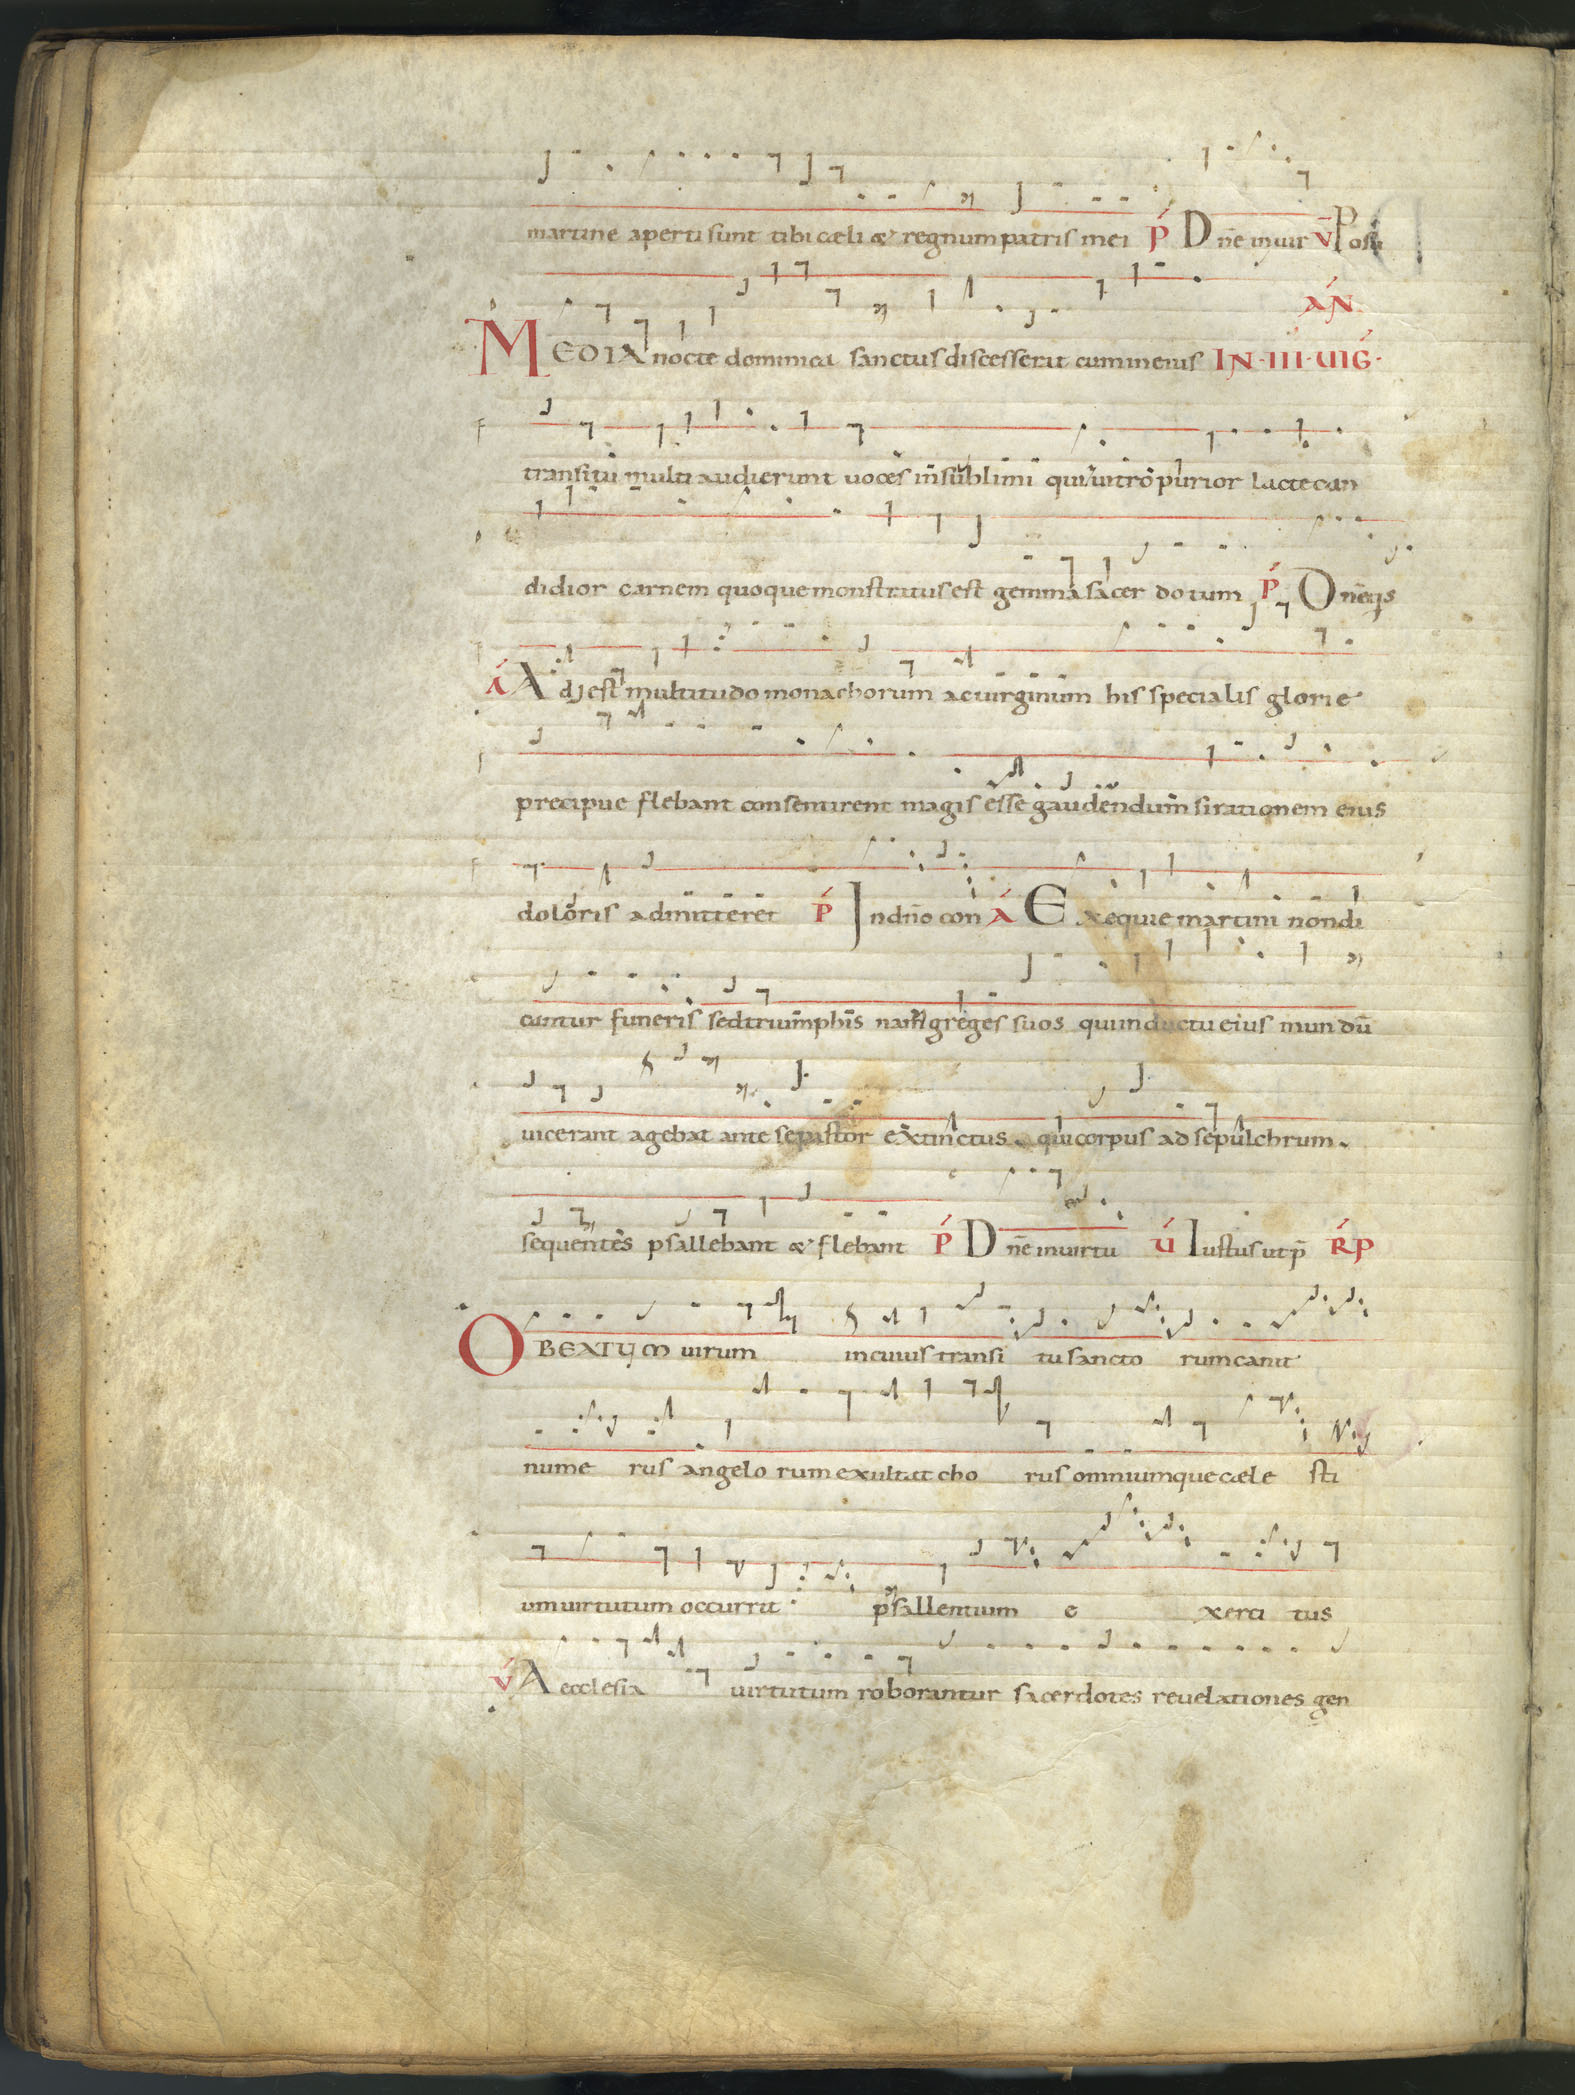 martine aperti sunt tibi cæli & regnum patris mei P D nē in uir V Posui
AN
MEDIA nocte dominica sanctus discesserit cum in eius IN·III·UIG·
transitū multi audierunt uoces in sublimi qui uitro purior lacte can
didior carnem quoque monstratus est gemma sacer dotum P D nē q̄s
A Adest multitudo monachorum ac uirginum his specialis glorie
precipue flebant consentirent magis esse gaudendum si rationem eius
doloris admitteret P In dn̄o con A Exequie martini non di
cuntur funeris sed triumphis nam greges suos qui in ductu eius mundū
uicerant agebat ante se pastor extinctus . qui corpus ad sepulchrum .
sequentes psallebant & flebant P D nē in uirtu U Iustus ut p̄ RP
O BEATUM uirum in cuius transi tu sancto rum canit
nume rus angelo rum exultat cho rus omniumque cæle sti
um uirtutum occurrit psallentium e xerci tus
V A ecclesia uirtutum roborantur sacerdotes reuelationes gen